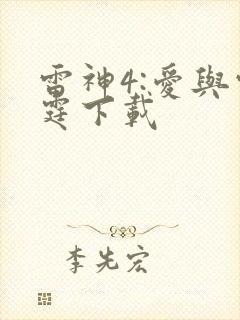 雷神4:愛與
霆下載
李先宏